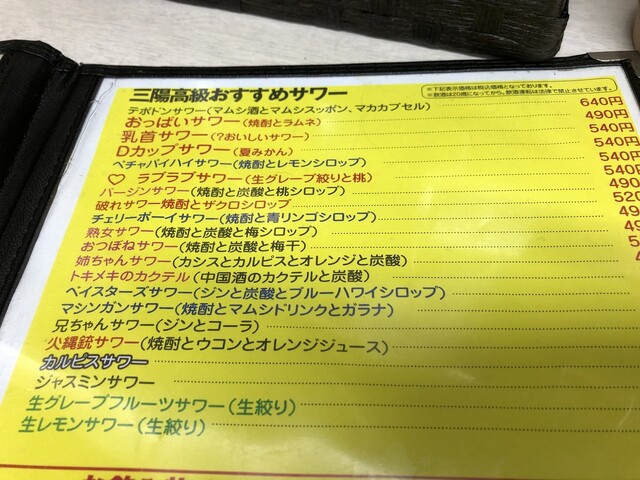 三陽高級おすすめサワー
※下記表示価格は税込価格となっております。
※飲酒は20歳になってから。飲酒運転は法律で禁止させています。
テポドンサワー(マムシ酒とマムシスッポン、マカカプセル) 640円
おっぱいサワー(焼酎とラムネ) 490円
乳首サワー(?おいしいサワー) 540円
Dカップサワー(夏みかん) 540円
ペチャパイハイサワー(焼酎とレモンシロップ) 540円
♡ ラブラブサワー(生グレープ絞りと桃) 540円
バージンサワー(焼酎と炭酸と桃シロップ) 490
破れサワー焼酎とザクロシロップ 520
チェリーボーイサワー(焼酎と青リンゴシロップ) 49
熟女サワー(焼酎と炭酸と梅シロップ) 49
おつぼねサワー(焼酎と炭酸と梅干) 5
姉ちゃんサワー(カシスとカルピスとオレンジと炭酸) 4
トキメキのカクテル(中国酒のカクテルと炭酸)
ベイスターズサワー(ジンと炭酸とブルーハワイシロップ)
マシンガンサワー(焼酎とマムシドリンクとガラナ)
兄ちゃんサワー(ジンとコーラ)
火縄銃サワー(焼酎とウコンとオレンジジュース)
カルピスサワー
ジャスミンサワー
生グレープフルーツサワー(生絞り)
生レモンサワー(生絞り)